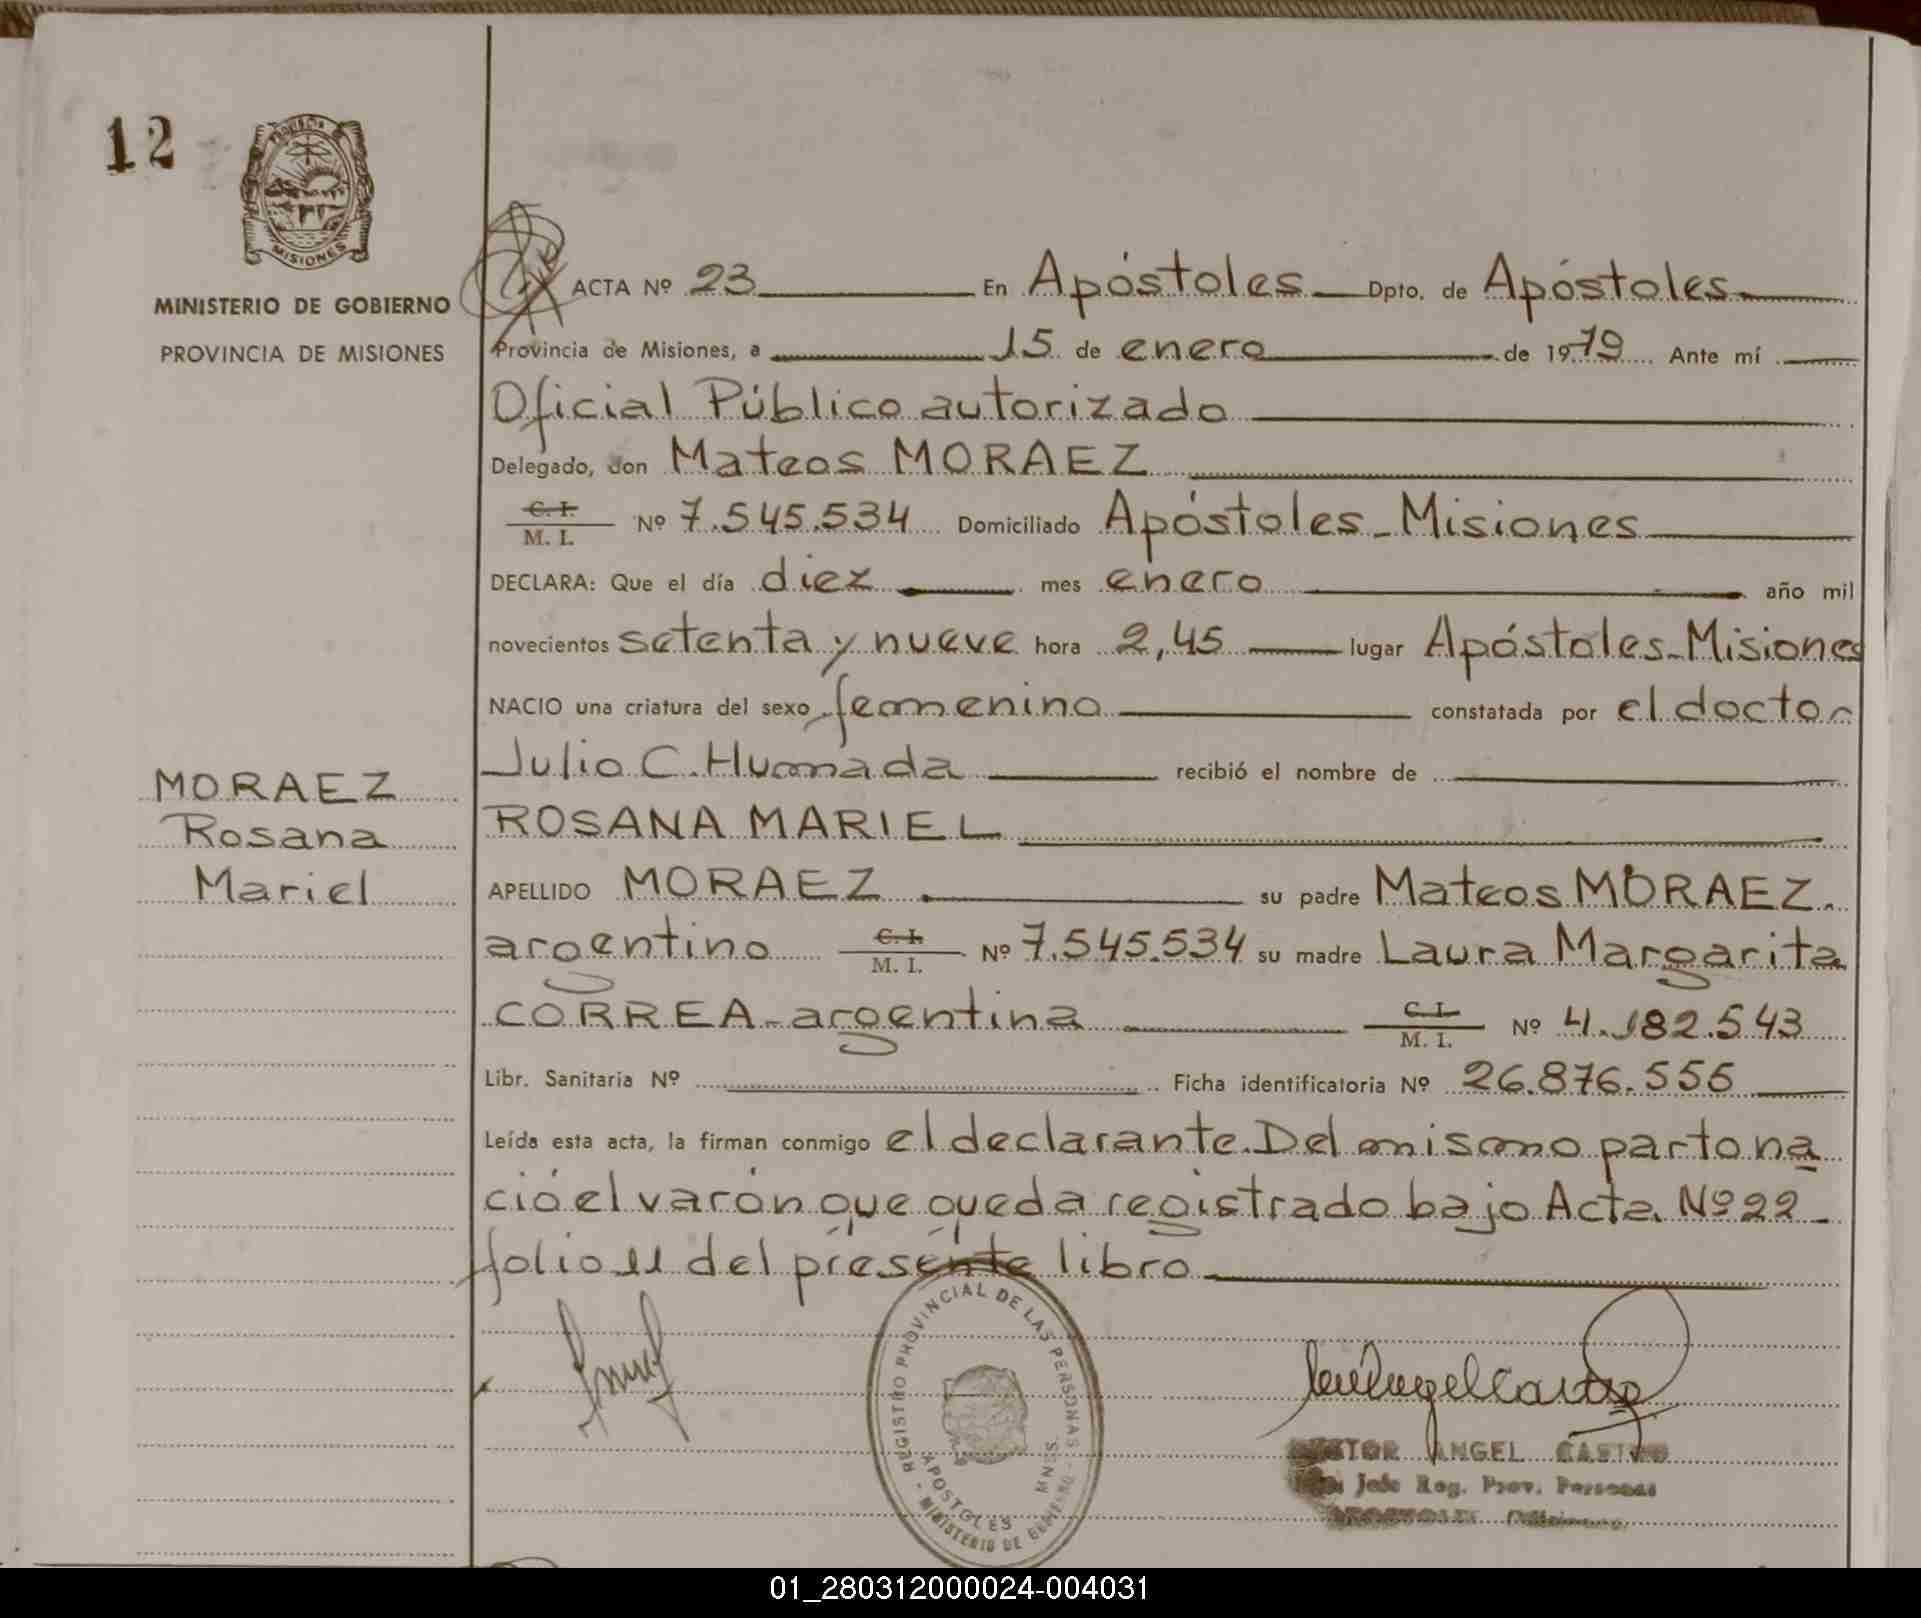 12
PROVINCIA
MISIONES
MINISTERIO DE GOBIERNO
PROVINCIA DE MISIONES
MORAEZ
Rosana
Mariel
ACTA Nº 23 En Apóstoles Dpto. de Apóstoles
Provincia de Misiones, a 15 de enero de 1979 Ante mí
Oficial Público autorizado
Delegado, don Mateos MORAEZ
C. I.
M. I. Nº 7.545.534 Domiciliado Apóstoles - Misiones
DECLARA: Que el día diez mes enero año mil
novecientos setenta y nueve hora 2,45 lugar Apóstoles - Misiones
NACIO una criatura del sexo femenino constatada por el doctor
Julio C. Humada recibió el nombre de
ROSANA MARIEL
APELLIDO MORAEZ su padre Mateos MORAEZ.
argentino C. I.
M. I. Nº 7.545.534 su madre Laura Margarita
CORREA - argentina C. I.
M. I. Nº 4.182.543
Libr. Sanitaria Nº Ficha identificatoria Nº 26.876.556
Leída esta acta, la firman conmigo el declarante. Del mismo parto na
ció el varón que queda registrado bajo Acta Nº 22 -
folio 11 del presente libro
REGISTRO PROVINCIAL DE LAS PERSONAS
APOSTOLES MNES.
- MINISTERIO DE GOBIERNO -
ANGEL CASTRO
Jefe Reg. Prov. Personas
01_280312000024-004031